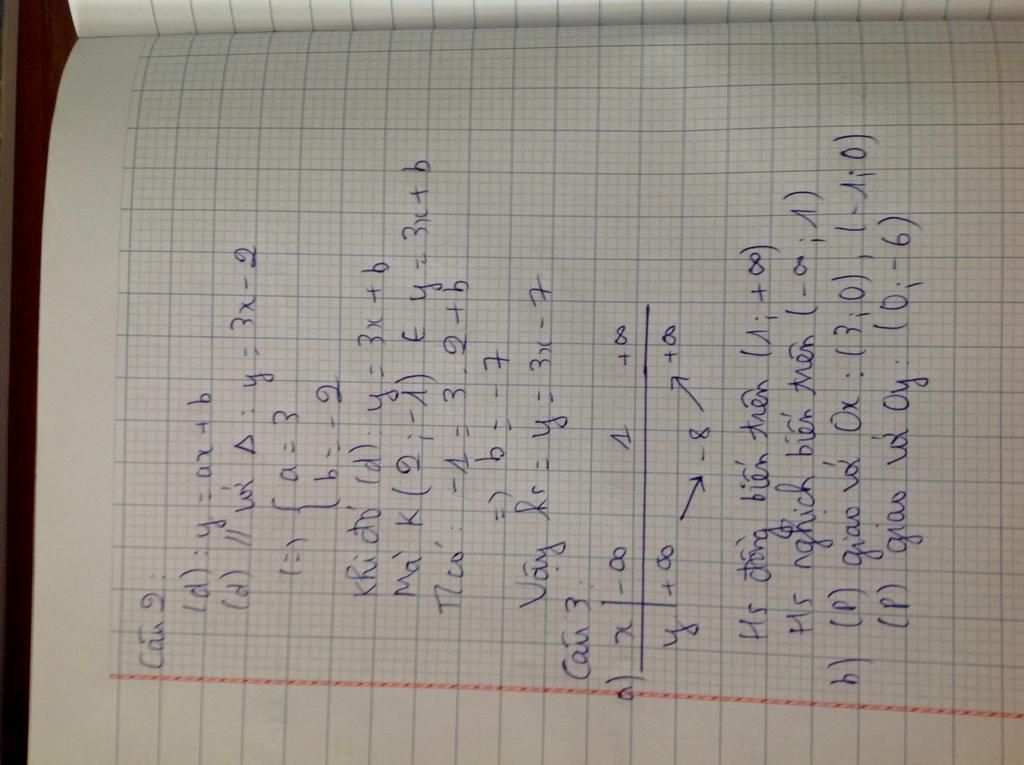 Câu 2:
(d): y = ax + b
(d) // với Δ: y = 3x - 2
(=) { a = 3
{ b = -2
Khi đó (d): y = 3x + b
Mà K(2; -1) ∈ y = 3x + b
Tacó: -1 = 3.2 + b
=) b = -7
Vậy hs = y = 3x - 7
Câu 3:
a) x | -∞ 1 +∞
y | +∞ ↘ -8 ↗ +∞
Hs đồng biến trên (1; +∞)
Hs nghịch biến trên (-∞; 1)
b) (P) giao với Ox: (3;0), (-1;0)
(P) giao với Oy: (0; -6)